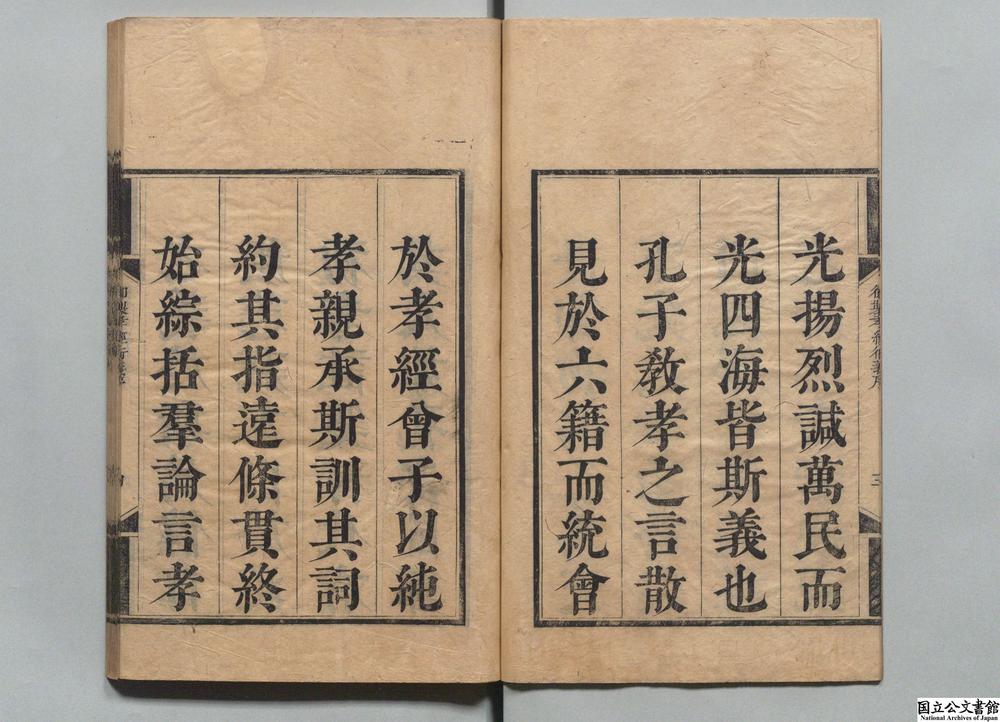 光揚烈諴萬民而
光四海皆斯義也
孔子教孝之言散
見於六籍而統會
於孝經曾子以純
孝親承斯訓其詞
約其指遠條貫終
始綜括羣論言孝
三
国立公文書館
National Archives of Japan